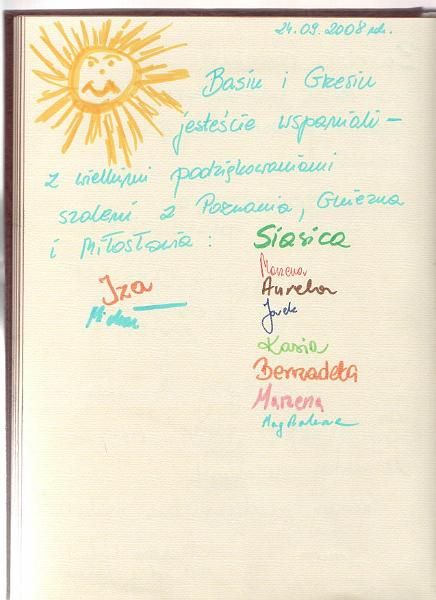 24.09.2008 rok.
Basiu i Grzesiu
jesteście wspaniali -
z wielkimi podziękowaniami
szaleni z Poznania, Gniezna
i Miłosławia:
Siasica
Marzena
Iza
Aurelia
Jarek
Kasia
Bernadeta
Marzena
Magdalena